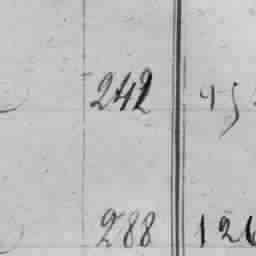 242
288 126